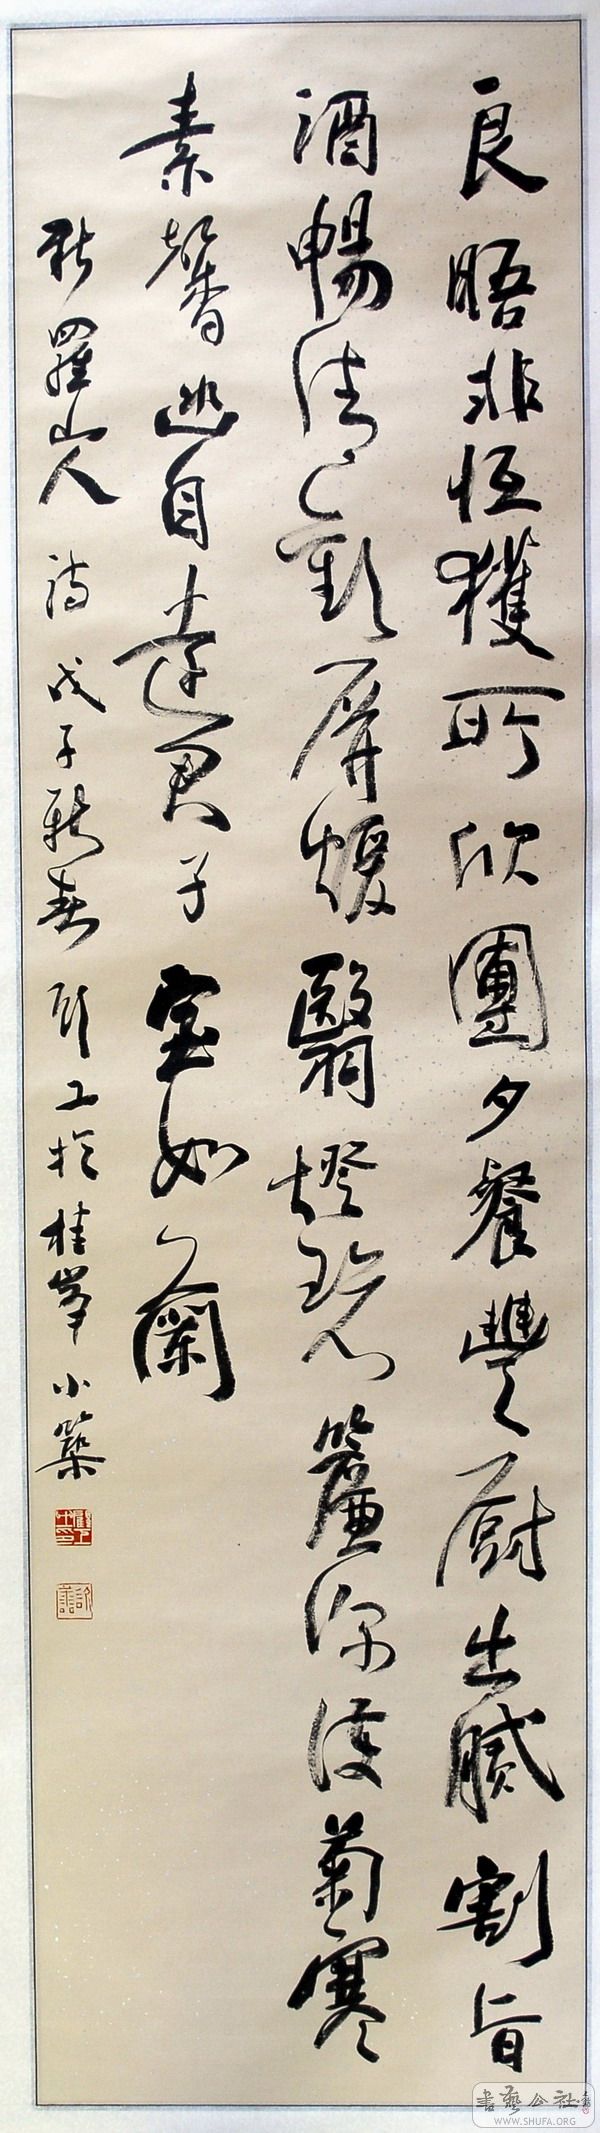 良晤非恒獲所欣團夕餐豐厨出腻割旨
酒暢清歡屏煖翳燈碧簾深護菊寒
素馨逃自遠君子室如蘭
新羅山人詩戊子新春顧工於桂峯小築
書藝公社
WWW.SHUFA.ORG